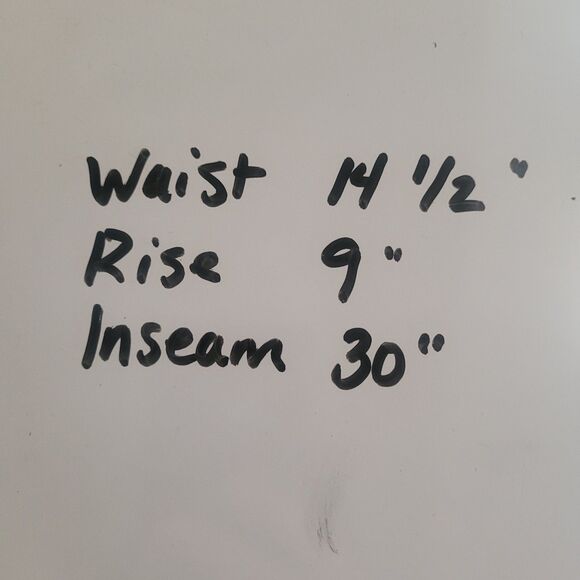 Waist 14 1/2"
Rise 9"
Inseam 30"